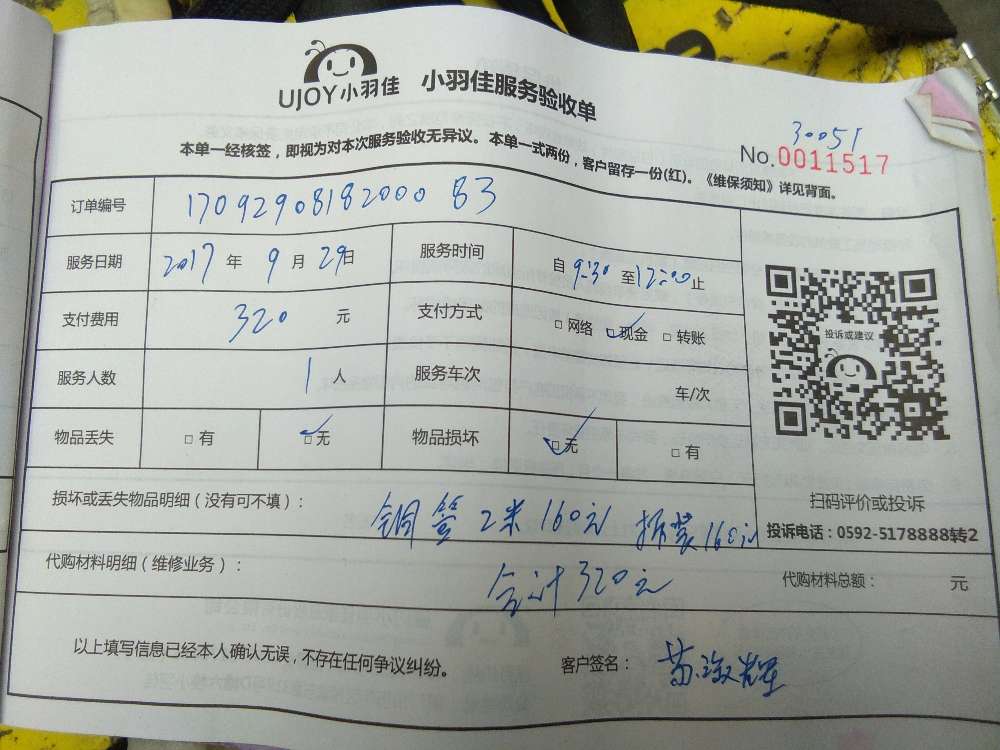 UJOY小羽佳 小羽佳服务验收单
30051
No.0011517
本单一经核签，即视为对本次服务验收无异议。本单一式两份，客户留存一份(红)。《维保须知》详见背面。
订单编号 1709290818200083
服务日期 2017 年 9 月 29日 服务时间 自 9:30 至12:00止
支付费用 320 元 支付方式 □ 网络 ☑现金 □ 转账
服务人数 1 人 服务车次 车/次
物品丢失 □ 有 ☑无 物品损坏 ☑无 □ 有
投诉或建议
扫码评价或投诉
投诉电话：0592-5178888转2
损坏或丢失物品明细（没有可不填）： 铜管 2米 160元 拆装160元
代购材料明细（维修业务）： 合计320元 代购材料总额： 元
以上填写信息已经本人确认无误，不存在任何争议纠纷。 客户签名：